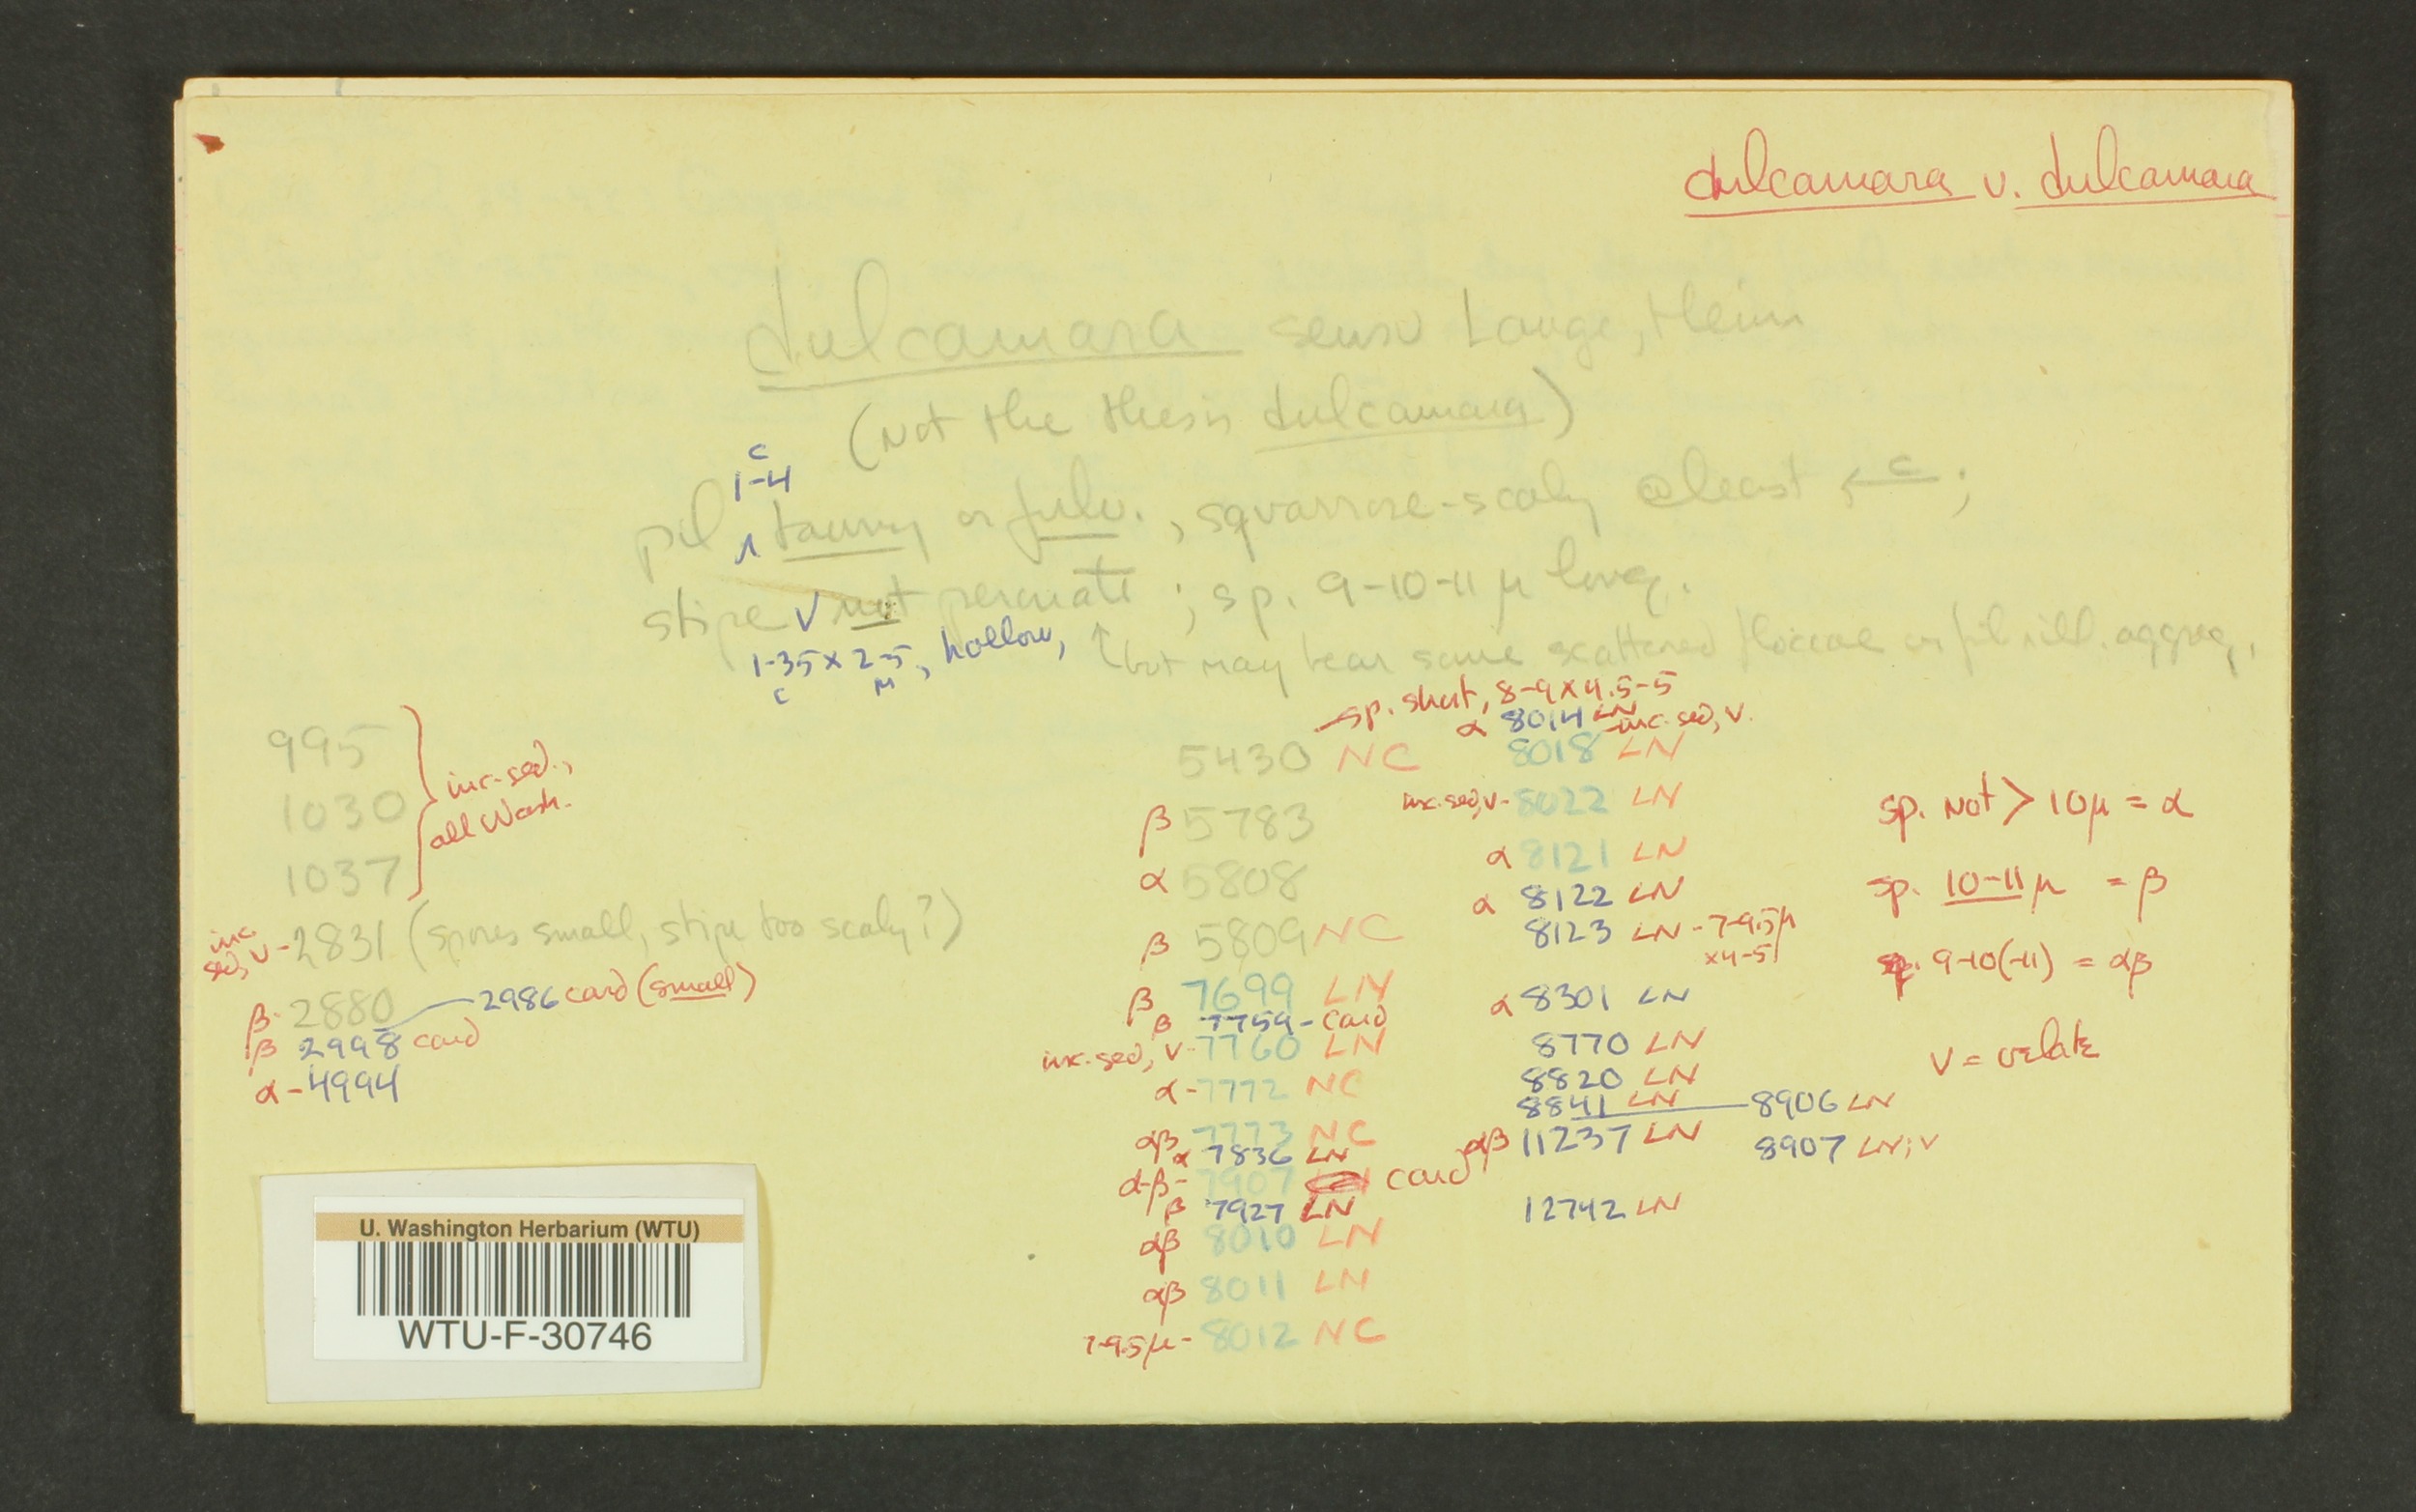 dulcamara v. dulcamara
dulcamara sensu Lange, Heim
(Not the thesis dulcamara)
c
1-4
pil ∧ tawny or fulv., squarrose-scaly @least ← c ;
stipe √ not peronate ; sp. 9-10-11 µ long.
1-3.5 x 2-5, hollow, ↑but may bear some scattered floccae or fibrill. aggreg.
c M
995
1030
1037
} inc. sed.,
all Wash.
inc.
sed, v - 2831 (spores small, stipe too scaly?)
β - 2880 — 2986 card (small)
β 2998 card
α - 4994
5430 NC - sp. short, 8-9 x 4.5-5
β 5783
α 5808
β 5809 NC
β 7699 LN
β 7759 - card
inc. sed, v - 7760 LN
α - 7772 NC
αβ 7773 NC
α 7836 LN
α-β - 7907 card
β 7927 LN
αβ 8010 LN
αβ 8011 LN
7-9.5µ - 8012 NC
α 8014 LN
8018 LN - inc. sed, v.
inc. sed, v - 8022 LN
α 8121 LN
α 8122 LN
8123 LN - 7-9.5µ
x 4-5
α 8301 LN
8770 LN
8820 LN
8841 LN — 8906 LN
αβ 11237 LN
8907 LN; v
12742 LN
sp. not > 10µ = α
sp. 10-11 µ = β
sp. 9-10(-11) = αβ
v = velate
U. Washington Herbarium (WTU)
WTU-F-30746